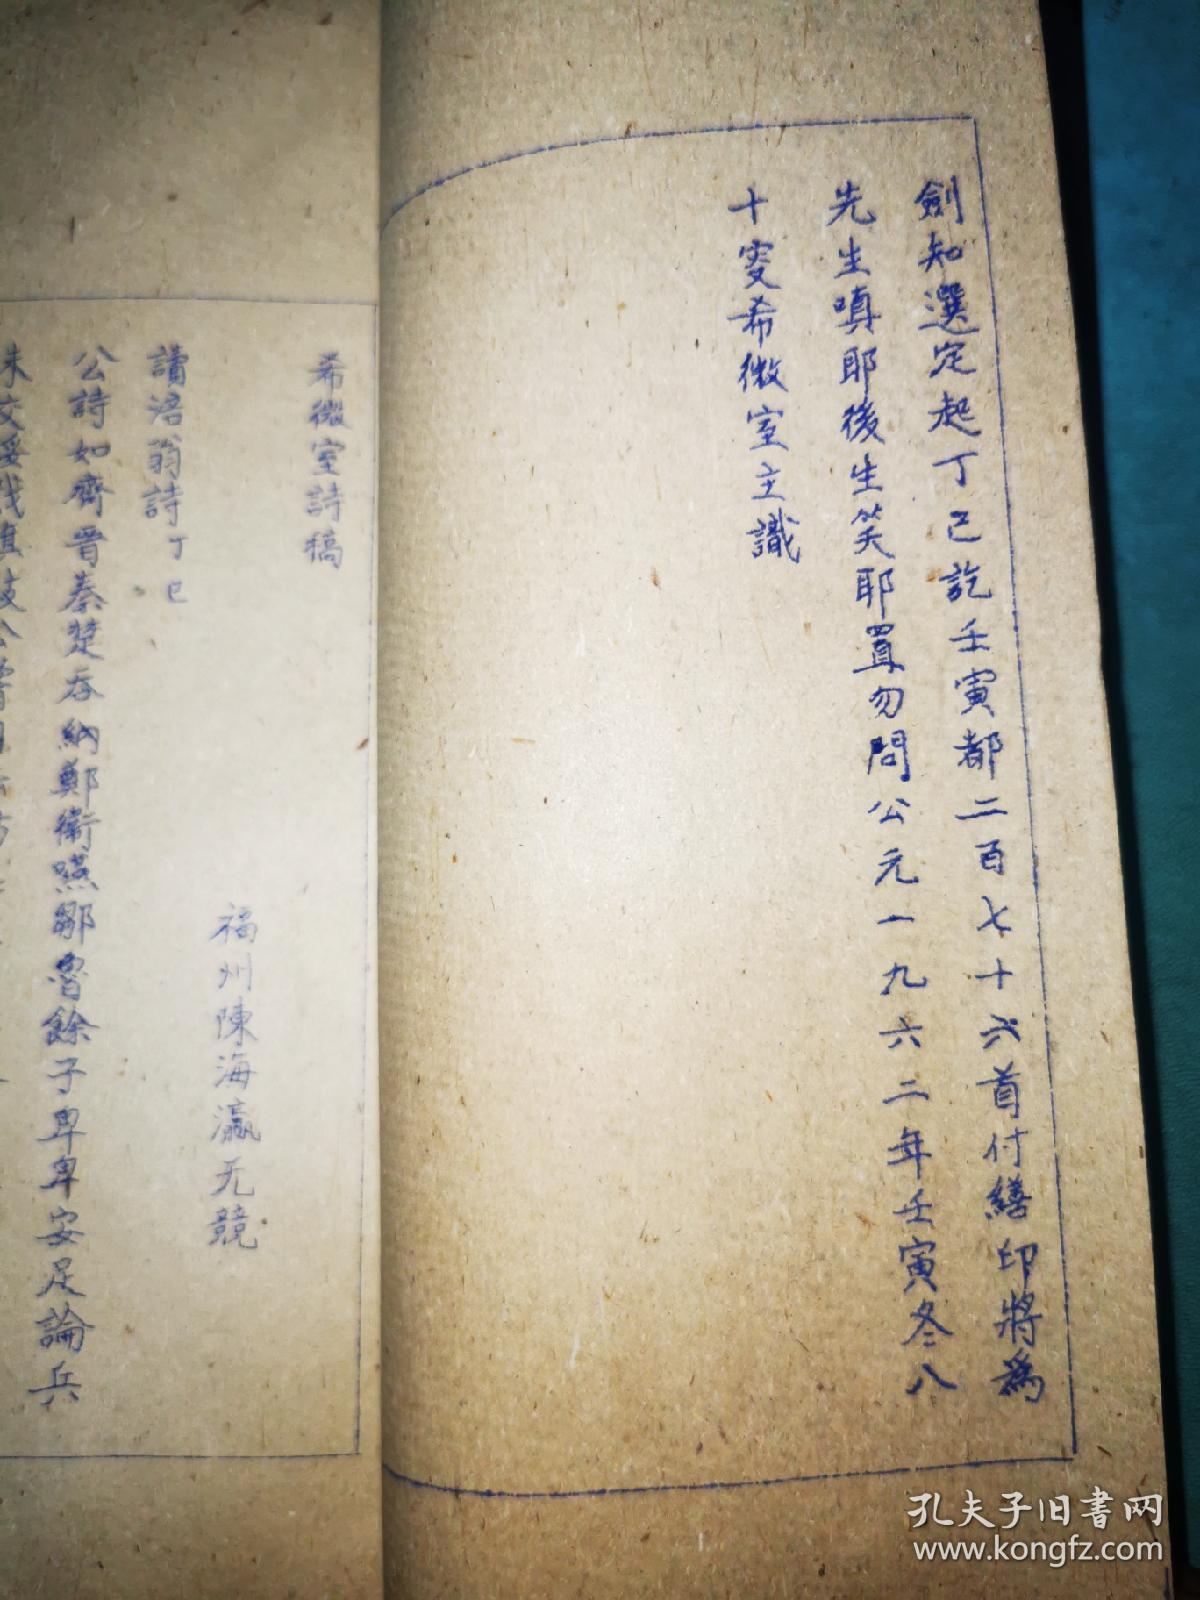 劍知選定起丁巳訖壬寅都二百七十六首付繕印將為
先生嗔耶後生笑耶置勿問公元一九六二年壬寅冬八
十叜希微室主識
希微室詩稿
福州陳海瀛无競
讀涪翁詩丁巳
公詩如齊晉秦楚吞納鄭衛燕鄒魯餘子卑卑安足論兵
孔夫子旧書网
www.kongfz.com